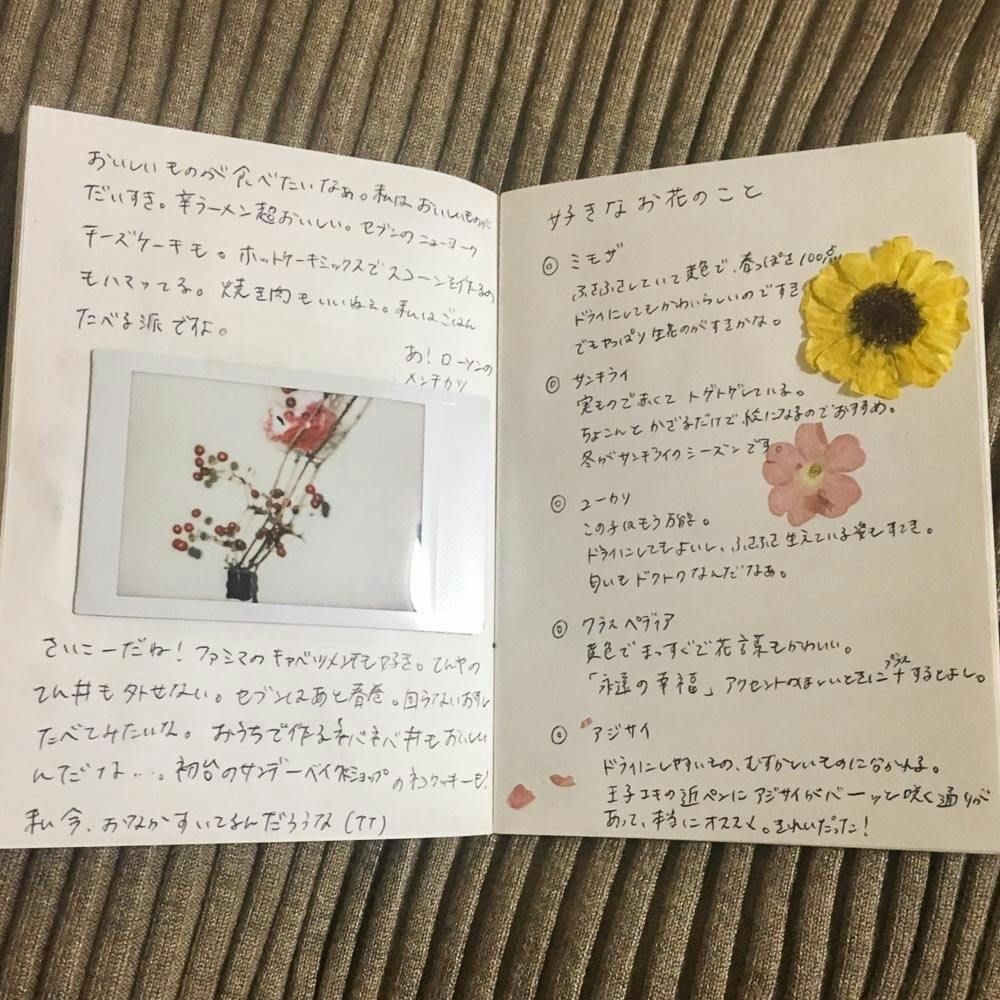 おいしいものが食べたいなぁ。私はおいしいものが
だいすき。辛ラーメン超おいしい。セブンのニューヨーク
チーズケーキも。ホットケーキミックスでスコーンを作るの
もハマってる。焼き肉もいいねぇ。私はごはん
たべる派ですよ。
あ!ローソンの
メンチカツ
さいこーだね!ファミマのキャベツメンチも好き。てんやの
てん丼も外せない。セブンはあと春巻。回らないおすし
たべてみたいな。おうちで作るネバネバ丼もおいしい
んだけな…。初台のサンデーベイクショップのネコクッキーも!
私今、おなかすいてるんだろうな(TT)
好きなお花のこと
◎ ミモザ
ふさふさしていて黄色で、春っぽさ100点。
ドライにしてもかわいらしいのですき
でもやっぱり生花のがすきかな。
◎ サンキライ
実もので赤くてトゲトゲしている。
ちょこんとかざるだけで、絵になるのでおすすめ。
冬がサンキライのシーズンです。
◎ ユーカリ
この子はもう万能。
ドライにしてもよいし、ふさふさ生えている姿もすてき。
匂いもドクトクなんだなぁ。
◎ クラスペディア
黄色でまっすぐで花言葉もかわいい。
「永遠の幸福」アクセントのほしいときに+プラスするとよし。
◎ アジサイ
ドライにしやすいもの、むずかしいものに分かれる。
王子エキの近ペンにアジサイがバーッと咲く通りが
あって、本当にオススメ。きれいだった!